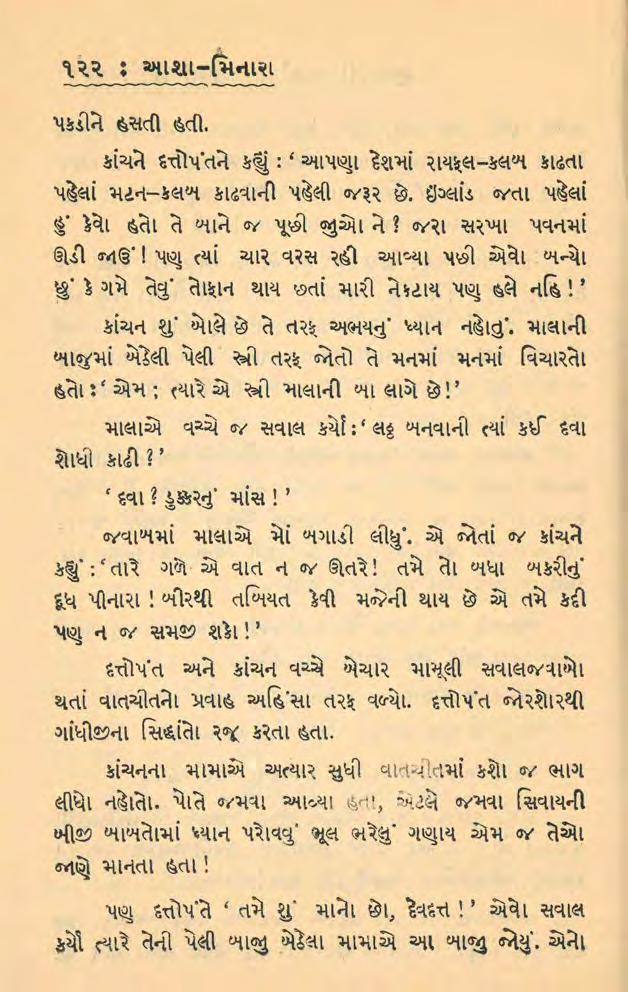 ૧૨૨ : આશા-મિનારા
પકડીને હસતી હતી.
કાંચને દત્તોપંતને કહ્યું : ‘ આપણા દેશમાં રાયફલ-કલબ કાઢતા
પહેલાં મટન-કલબ કાઢવાની પહેલી જરૂર છે. ઇંગ્લાંડ જતા પહેલાં
હું કેવો હતો તે બાને જ પૂછી જુઓ ને ? જરા સરખા પવનમાં
ઊડી જાઉં ! પણ ત્યાં ચાર વરસ રહી આવ્યા પછી એવો બન્યો
છું કે ગમે તેવું તોફાન થાય છતાં મારી નેકટાય પણ હલે નહિ ! ’
કાંચન શું બોલે છે તે તરફ અભયનું ધ્યાન નહોતું. માલાની
બાજુમાં બેઠેલી પેલી સ્ત્રી તરફ જોતો તે મનમાં મનમાં વિચારતો
હતો : ‘ એમ ; ત્યારે એ સ્ત્રી માલાની બા લાગે છે ! ’
માલાએ વચ્ચે જ સવાલ કર્યો : ‘ લઠ્ઠ બનવાની ત્યાં કઈ દવા
શોધી કાઢી ? ’
‘ દવા ? ડુક્કરનું માંસ ! ’
જવાબમાં માલાએ મોં બગાડી લીધું. એ જોતાં જ કાંચને
કહ્યું : ‘ તારે ગળે એ વાત ન જ ઊતરે ! તમે તો બધા બકરીનું
દૂધ પીનારા ! બીરથી તબિયત કેવી મજેની થાય છે એ તમે કદી
પણ ન જ સમજી શકો ! ’
દત્તોપંત અને કાંચન વચ્ચે બેચાર મામૂલી સવાલજવાબો
થતાં વાતચીતનો પ્રવાહ અહિંસા તરફ વળ્યો. દત્તોપંત જોરશોરથી
ગાંધીજીના સિદ્ધાંતો રજૂ કરતા હતા.
કાંચનના મામાએ અત્યાર સુધી વાતચીતમાં કશો જ ભાગ
લીધો નહોતો. પોતે જમવા આવ્યા હતા, એટલે જમવા સિવાયની
બીજી બાબતોમાં ધ્યાન પરોવવું ભૂલ ભરેલું ગણાય એમ જ તેઓ
જાણે માનતા હતા !
પણ દત્તોપંતે ‘ તમે શું માનો છો, દેવદત્ત ! ’ એવો સવાલ
કર્યો ત્યારે તેની પેલી બાજુ બેઠેલા મામાએ આ બાજુ જોયું. એનો